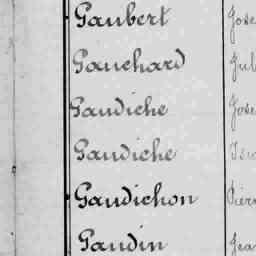 Gaubert Jose
Gauchard Jul
Gaudiche Jose
Gaudiche
Gaudichon Pierr
Gaudin Jea